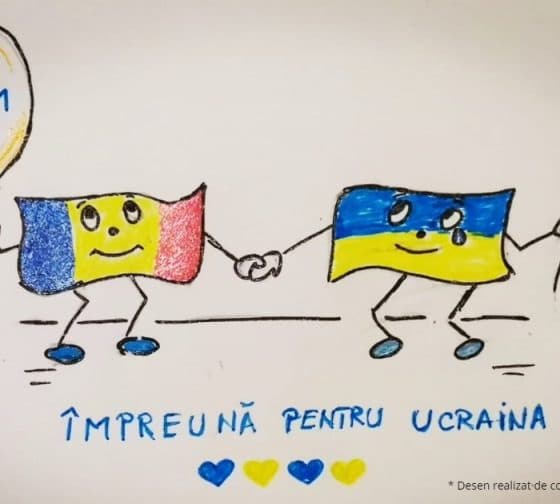 ÎMPREUNĂ PENTRU UCRAINA
* Desen realizat de co